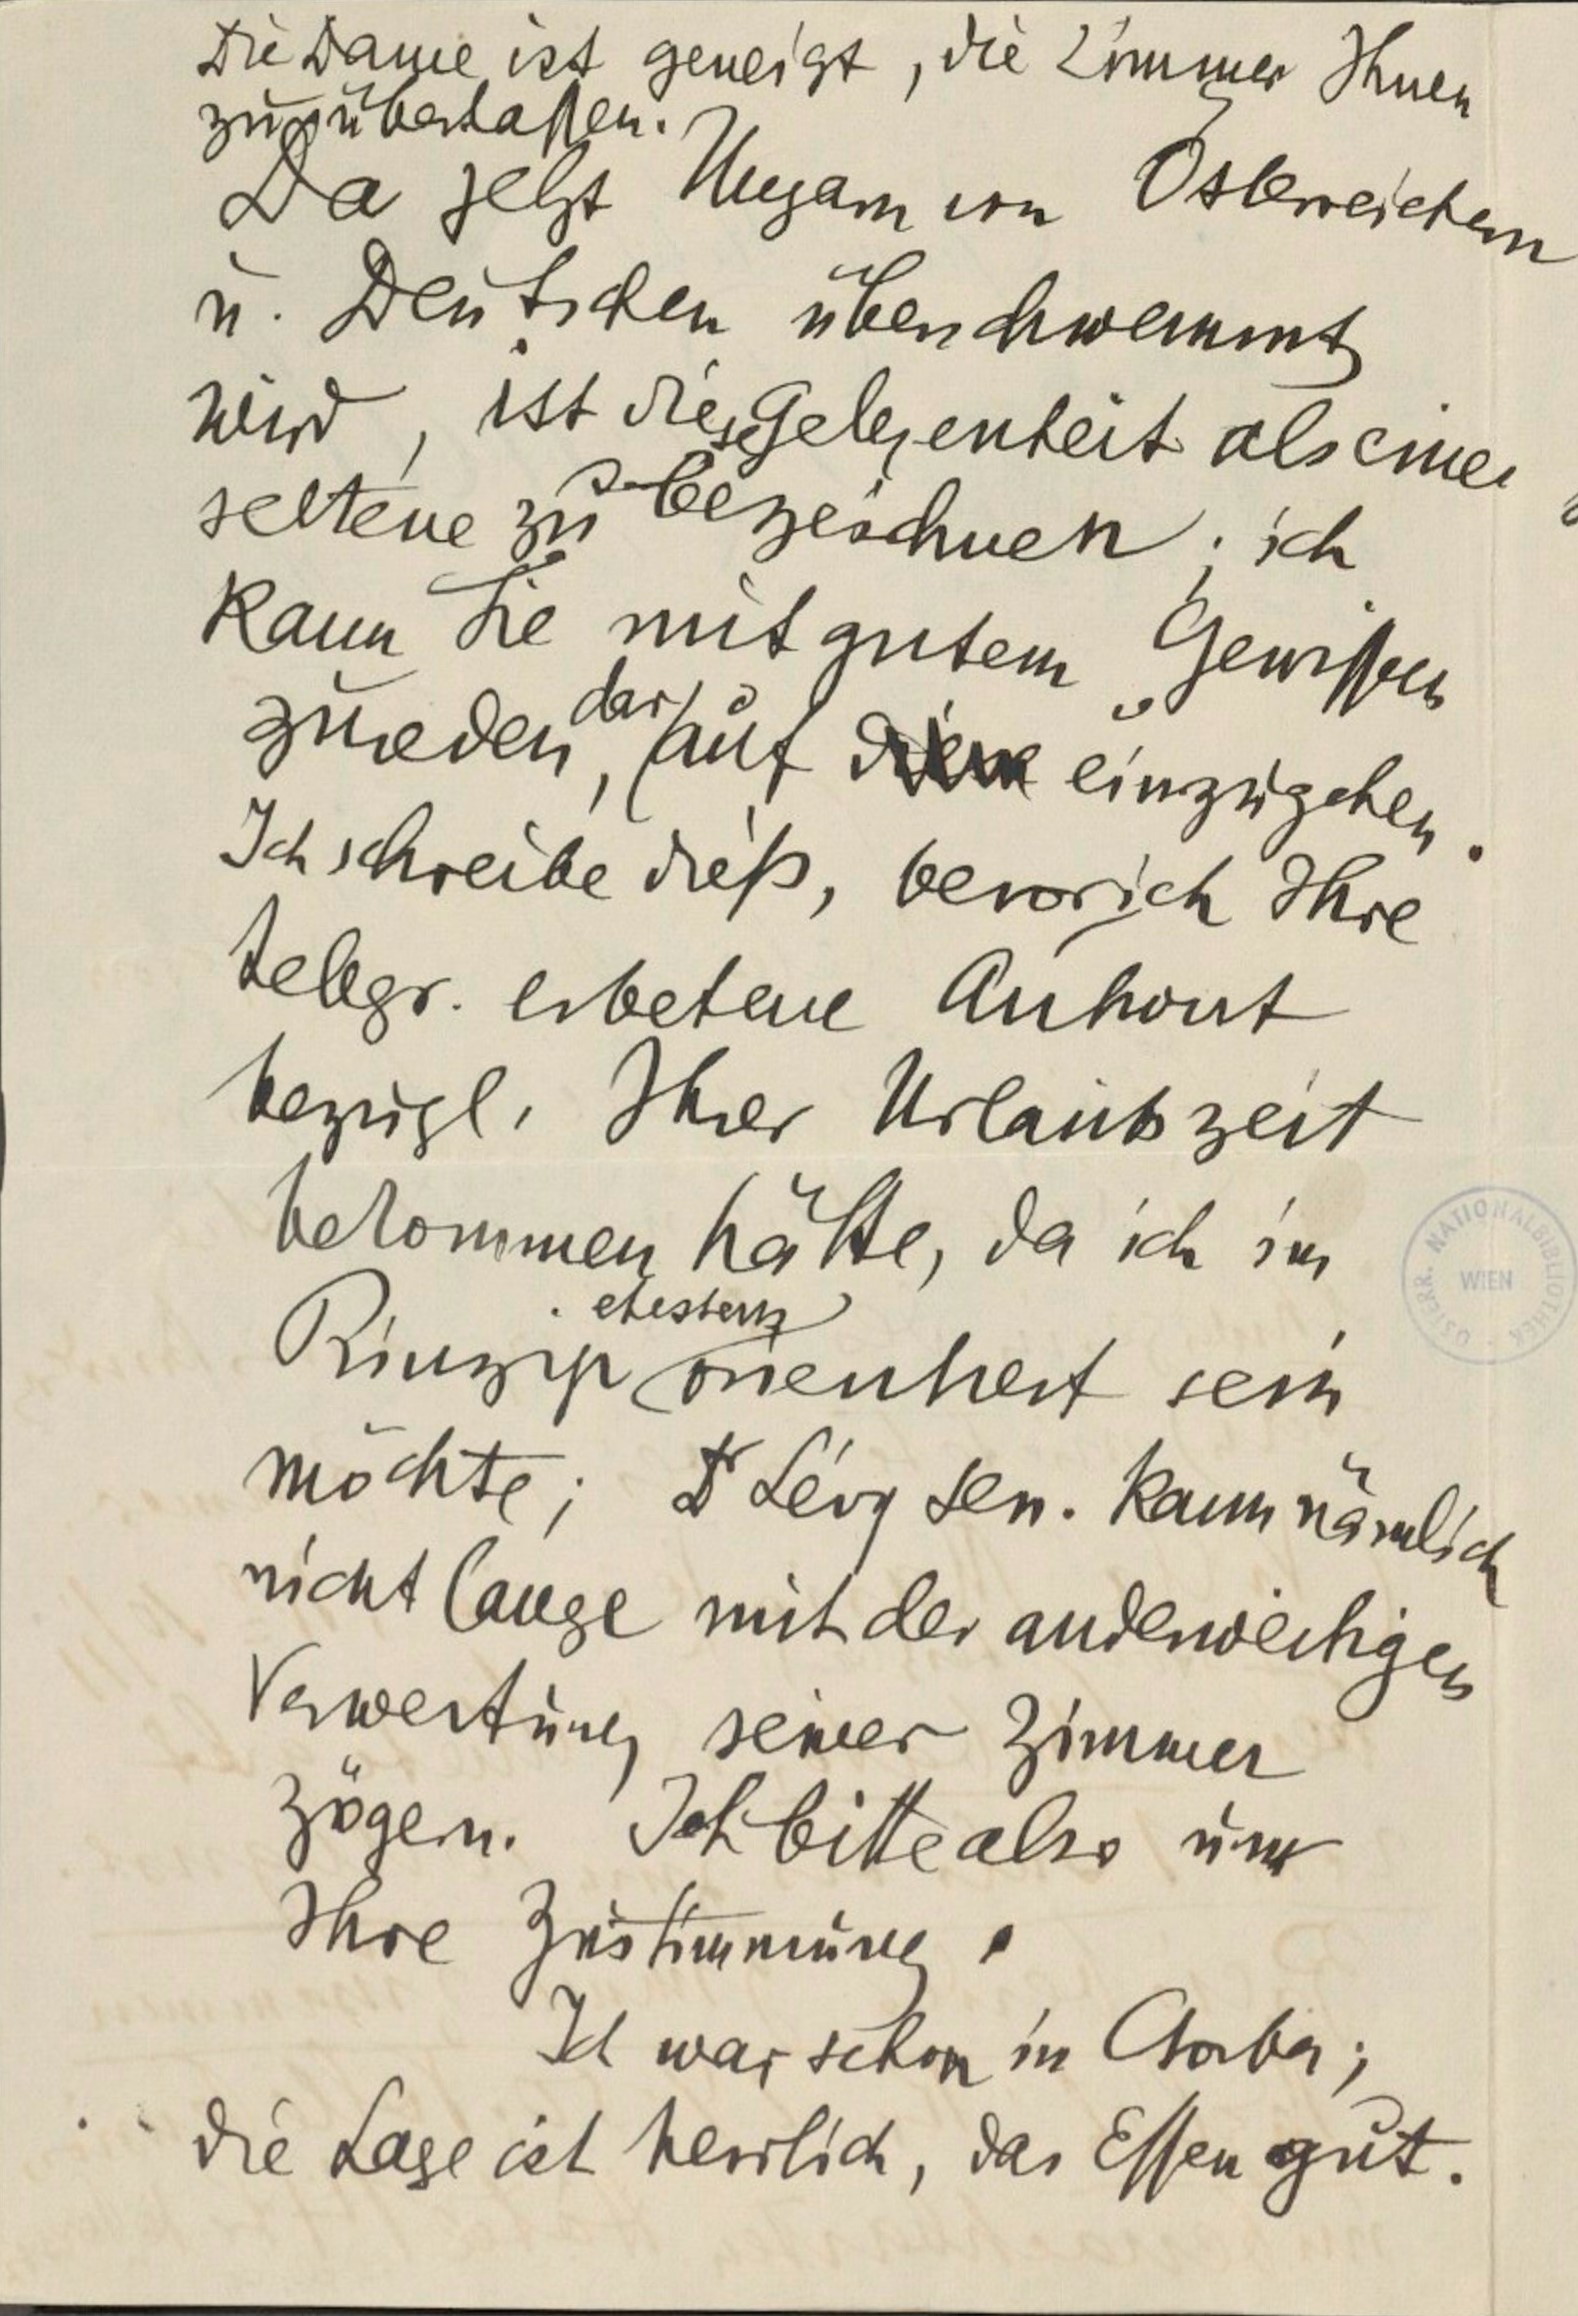 Die Dame ist geneigt, die Zimmer Ihnen
zu überlaßen.
Da jetzt Ungarn von Österreichern
u. Deutschen überschwemmt
wird, ist diese Gelegenheit als eine
seltene zu bezeichnen; ich
kann Sie mit gutem Gewißen
zureden, darauf einzugehen.
Ich schreibe dieß, bevor ich Ihre
telegr. erbetene Antwort
bezügl. Ihrer Urlaubszeit
bekommen hätte, da ich im
Prinzip ehestens orientiert sein
möchte; Dr Lévy sen. kann nämlich
nicht lange mit der anderweitigen
Verwertung seiner Zimmer
zögern. Ich bitte also um
Ihre Zustimmung.
Ich war schon in Csorba;
die Lage ist herrlich, das Eßen gut.
ÖSTERR. NATIONALBIBLIOTHEK
WIEN